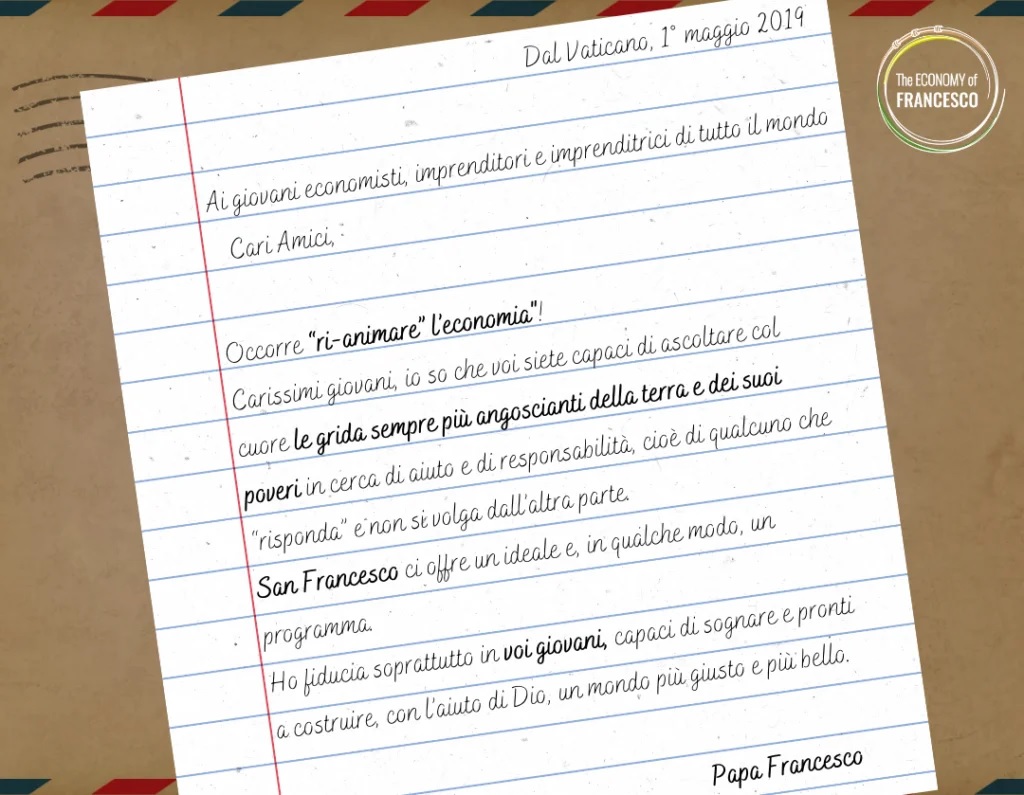 Dal Vaticano, 1° maggio 2019
The ECONOMY of
FRANCESCO
Ai giovani economisti, imprenditori e imprenditrici di tutto il mondo
Cari Amici,
Occorre “ri-animare” l'economia"!
Carissimi giovani, io so che voi siete capaci di ascoltare col
cuore le grida sempre più angoscianti della terra e dei suoi
poveri in cerca di aiuto e di responsabilità, cioè di qualcuno che
“risponda” e non si volga dall'altra parte.
San Francesco ci offre un ideale e, in qualche modo, un
programma.
Ho fiducia soprattutto in voi giovani, capaci di sognare e pronti
a costruire, con l'aiuto di Dio, un mondo più giusto e più bello.
Papa Francesco